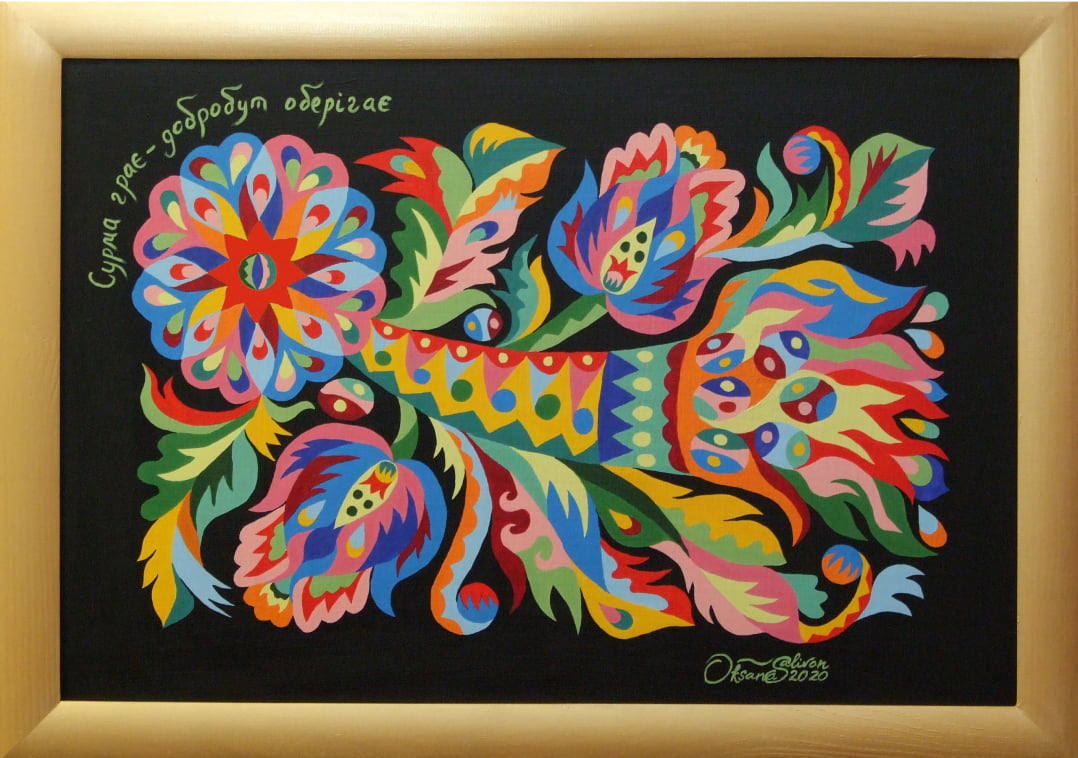 Сурма грає - добробут оберігає
Oksana Salivon
2020